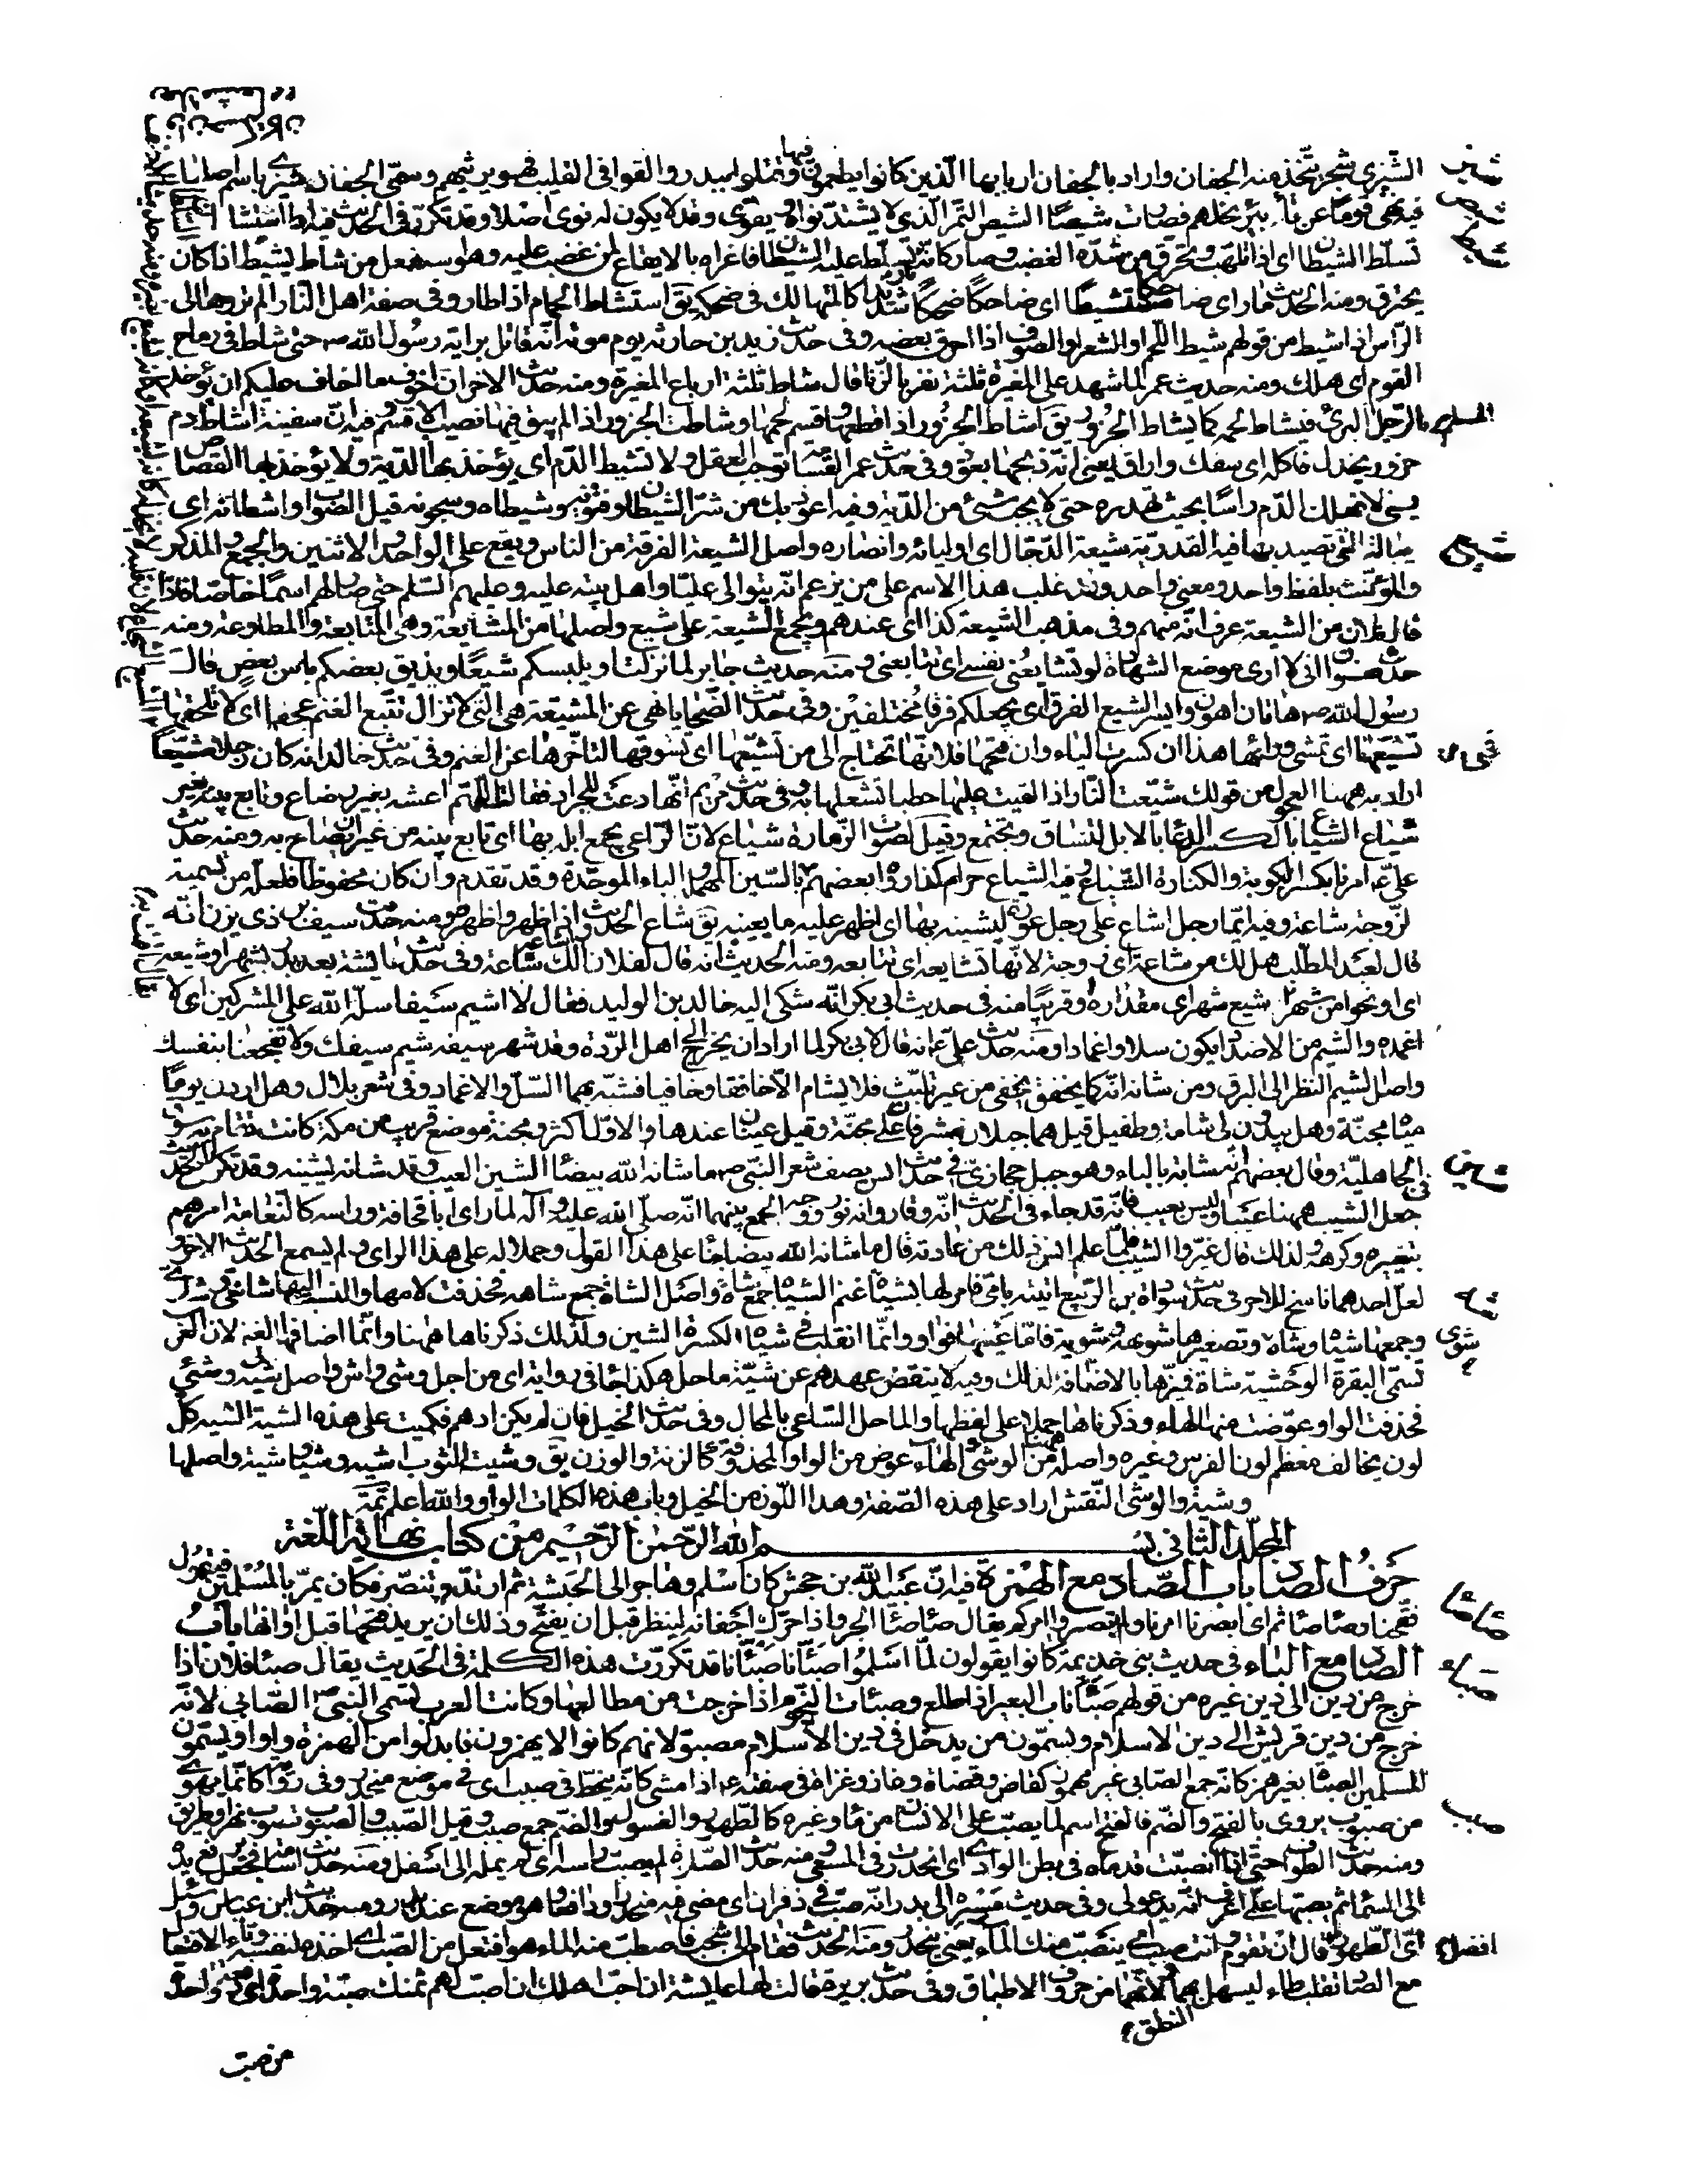 الشيزى شجر يتخذ منه الجفان واراد بالجفان اربابها الذين كانوا يطعمون فيها وقتلوا ببدر والقوا فى القليب فهو يرثيهم وسمى الجفان شيزى باسم اصلها
شيز
فيه نهى قوما عن تأبير نخلهم فصارت شيصا الشيص التمر الذى لا يشتد نواه ويقوى وقد لا يكون له نوى اصلا وقد تكرر فى الحديث فيه اذا استشاط السلطان
شيص
تسلط الشيطان اى اذا تلهب وتحرق من شدة الغضب وصار كانه نار تسلط عليه الشيطان فاغراه بالايقاع لمن غضب عليه وهو استفعل من شاط يشيط اذا كان
شيط
يحترق ومنه الحديث ما راى ضاحكا مستشيطا اى ضاحكا ضحكا شديدا كالمتهالك فى ضحكه يق استشاط الحمام اذا طار وفى صفة اهل النار الم تروها الى
الراس اذا شيط من قولهم شيط اللحم او الشعر او الصوف اذا احرق بعضه وفى حديث زيد بن حارثه يوم موته انه قاتل براية رسول الله ص حتى شاط فى رماح
القوم اى هلك ومنه حديث عمر لما شهد على المغيرة ثلثة نفر بالزنا قال شاط ثلثة ارباع المغيرة ومنه حديث الاخر ان اخوف ما اخاف عليكم ان يؤخذ
الرجل المسلم البرئ فيشاط لحمه كما يشاط الجزور يق اشاط الجزور اذا قطعها وقسم لحمها وشاطت الجزور اذا لم يبق فيها نصيب الا قسم وفيه ان سفينة اشاط دم
جزور بجذل فاكله اى سفك واراق يعنى انه ذبحها بعود وفى حديث عمر القسامة توجب العقل ولا تشيط الدم اى يؤخذ بها الدية ولا يؤخذ بها القصاص
يعنى لا تهلك الدم راسا بحيث تهدره حتى لا يجب شئ من الدية وفيه اعوذ بك من شر الشيطان وفتونه وشيطاه وسجونه قيل الصواب واشطانه اى
حباله التى تصيد بها فيه القدرية شيعة الدجال اى اوليائه وانصاره واصل الشيعة الفرقة من الناس ويقع على الواحد والاثنين والجمع والمذكر
شيع
والمؤنث بلفظ واحد ومعنى واحد وقد غلب هذا الاسم على من يزعم انه يتوالى عليا واهل بيته عليه وعليهم السلم حتى صار لهم اسما خاصا فاذا
قال فلان من الشيعة عرف انه منهم وفى مذهب الشيعة كذا اى عندهم وتجمع الشيعة على شيع واصلها من المشايعة وهى المتابعة والمطاوعة ومنه
حديث صفوان انى لا ارى موضع الشهادة لو تشايعنى نفسى اى تتابعنى ومنه حديث جابر لما نزلت او يلبسكم شيعا ويذيق بعضكم باس بعض قال
رسول الله ص هاتان اهون وايسر الشيع الفرق اى يجعلكم فرقا مختلفين وفى حديث الضحايا نهى عن المشيعة هى التى لا تزال تتبع الغنم عجفا اى لا تلحقها
تشيعها اى تمشى ورائها هذا ان كسرت الياء وان فتحتها فلانها تحتاج الى من تشيعها اى تسوقها لتاخرها عن الغنم وفى حديث خالد انه كان رجلا مشيعا
اراد به ههنا العجول من قولك شيعت النار اذا القيت عليها حطبا تشعلها به وفى حديث مريم انها دعت للجراد فقالت اللهم اعشه بغير رضاع وتابع بينه بغير
شياع الشياع بالكسر الدعا بالابل لتنساق وتجتمع وقيل لصوت الزمارة شياع لان الراعى يجمع ابله بها اى تابع بينه من غير ان يصاح به ومنه حديث
على ع امرنا بكسر الكوبة والكنارة والشياع وفيه الشياع حرام كذا رواه بعضهم بالسين المهملة والباء الموحدة وقد تقدم وان كان محفوظا فلعله من تسمية
الزوجة شاعة وفيه ايما رجل اشاع على رجل عورة ليشينه بها اى اظهر عليه ما يعيبه يق شاع الحديث واشاعه اذا ظهر واظهره ومنه حديث سيف بن ذى يزن انه
قال لعبد المطلب هل لك من شاعة اى زوجة لانها تشايعه اى تتابعه ومنه الحديث انه قال لفلان الك شاعة وفى حديث عايشة بعد بدر بشهر او شيعه
اى او نحوا من شهر شيع شهر اى مقداره او قريبا منه فى حديث ابى بكر انه شكى اليه خالد بن الوليد فقال لا اشيم سيفا سله الله على المشركين اى لا
اغمده والشيم من الاضداد يكون سلا واغمادا ومنه حديث على ع انه قال لابى بكر لما اراد ان يخرج الى اهل الردة وقد شهر سيفه شيم سيفك ولا تفجعنا بنفسك
واصل الشيم النظر الى البرق ومن شانه انه كما يخفق يخفى من غير تلبث فلا يشام الا خافقا وخافيا فشبه بهما السل والاغماد وفى شعر بلال وهل اردن يوما
مياه مجنة وهل يبدون لى شامة وطفيل قيل هما جبلان مشرفان على مجنة وقيل عينان عندها والاول اكثر ومجنة موضع قريب من مكة كانت تقام به سوق
فى الجاهلية وقال بعضهم انه شابة بالباء وهو جبل حجازى فى حديث انس يصف شعر النبى ص ما شانه الله ببيضا الشين العيب وقد شانه يشينه وقد تكرر فى الحديث
شين
جعل الشيب ههنا عيبا وليس بعيب فانه قد جاء فى الحديث انه وقار وانه نور ووجه الجمع بينهما انه صلى الله عليه وآله لما راى ابا قحافة وراسه كالثغامة امرهم
بتغييره وكرهه ولذلك قال غيروا الشيب فلما علم انس ذلك من عادته قال ما شانه الله ببيضا بناء على هذا القول وحملا له على هذا الراى ولم يسمع الحديث الاخر و
لعل احدهما ناسخ للاخر فى حديث سوادة بن الربيع اتيته بامى فامر لها بشياه غنم الشياه جمع شاة واصل الشاة جمع شاهه فحذفت لامها والنسب اليها شاهى وشاوى
شيه
وجمعها شياه وشاء وتصغيرها شويهة وشوية فاما عينها فواو وانما انقلبت فى شياه لكسرة الشين ولذلك ذكرناها ههنا وانما اضافها الى الغنم لان العرب
شوى
تسمى البقرة الوحشية شاة فميزها بالاضافة لذلك وفيه لا ينقض عهدهم عن شية ماحل هكذا جا فى رواية اى من اجل وشى واش واصل شية وشى
فحذفت الواو وعوضت منها الهاء وذكرناها ههنا حملا على لفظها والماحل الساعى بالمحال وفى حديث الخيل فان لم يكن ادهم فكميت على هذه الشية الشيه كل
لون يخالف معظم لون الفرس وغيره واصله من الوشى والهاء عوض من الواو المحذوفة كالزنة والوزن يق وشيت الثوب اشيه وشيا وشية واصلها
وشية والوشى النقش اراد على هذه الصفة وهذا اللون من الخيل وباب هذه الكلمات الواو والله اعلم تمة
المجلد الثانى بسم الله الرحمن الرحيم من كتاب نهاية اللغة
حرف الصاد باب الصاد مع الهمزة فيه ان عبيد الله بن جحش كان اسلم وهاجر الى الحبشة ثم ارتد وتنصر فكان يمر بالمسلمين فيقول
فقحنا وصاصاتم اى ابصرنا امرنا ولم تبصروا امركم يقال صاصا الجرو اذا حرك اجفانه لينظر قبل ان يفقح وذلك ان يريد فتحها قبل اوانها باب
صاصا
الصاد مع الباء فى حديث بنى خذيمة كانوا يقولون لما اسلموا صبأنا صبأنا قد تكررت هذه الكلمة فى الحديث يقال صبا فلان اذا
صباء
خرج من دين الى دين غيره من قولهم صبأ ناب البعير اذا طلع وصبات النجوم اذا خرجت من مطالعها وكانت العرب تسمى النبى ص الصابى لانه
خرج من دين قريش الى دين الاسلام ويسمون من يدخل فى دين الاسلام مصبوا لانهم كانوا لا يهمزون فابدلوا من الهمزة واوا ويسمون
المسلمين الصباة بغير همز كانه جمع الصابى غير مهموز كقاض وقضاة وغاز وغزاة فى صفته ع اذا مشى كانه ينحط فى صبب اى فى موضع منحدر وفى رواية كانما يهوى
من صبوب يروى بالفتح والضم فالفتح اسم لما يصب على الانسان من ماء وغيره كالطهور والغسول والضم جمع صبب وقيل الصبب والصبوب تصوب نهر او طريق
صبب
ومنه حديث الطواف حتى اذا انصبت قدماه فى بطن الوادى اى انحدرت فى المسعى ومنه حديث الصلوة لم يصب راسه اى لم يمله الى اسفل ومنه حديث اسامة فجعل يرفع يده
الى السماء ثم يصبها على اعرف انه يدعو لى وفى حديث مسيره الى بدر انه صب فى ذفران اى مضى فيه منحدرا ودافعا وهو موضع عند بدر ومنه حديث ابن عباس وسئل
اى الطهور افضل قال ان تقوم وانت صبب اى ينصب منك الماء يعنى يتحدر ومنه الحديث فقام الى شجب فاصطب منه الماء هو افتعل من الصب اى اخذه لنفسه وتاء الافتعال
مع الصاد تقلب طاء ليسهل النطق بهما لانهما من حروف الاطباق وفى حديث بريرة قالت لها عايشة ان احب اهلك ان اصب لهم ثمنك صبة واحدة اى دفعة واحدة
من صب